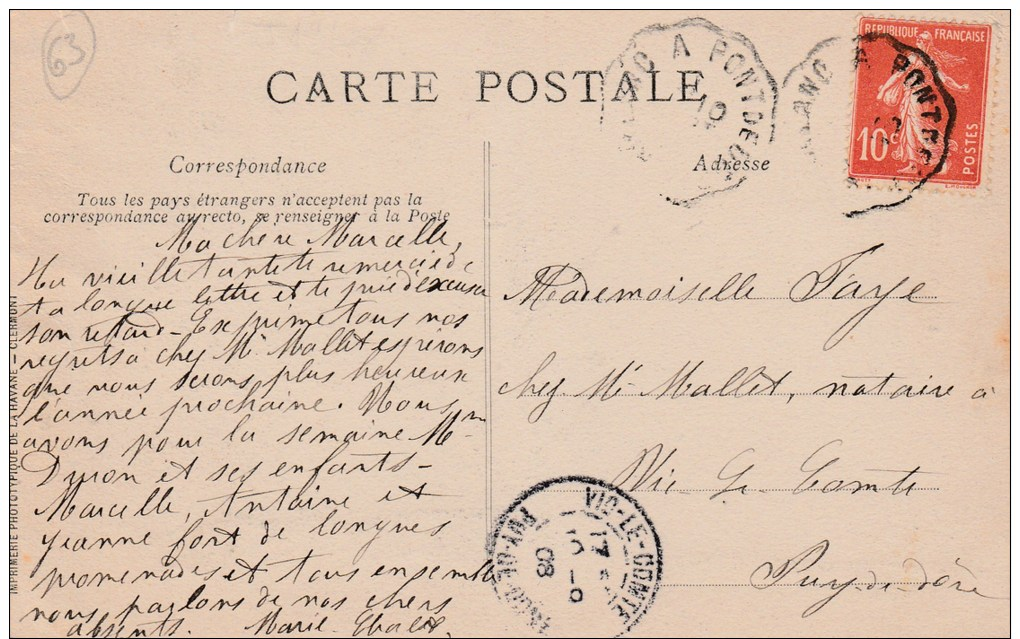 63
CARTE POSTALE
A PONT DE
10
RÉPUBLIQUE FRANÇAISE
10c
POSTES
A PONT DE
Correspondance
Adresse
Tous les pays étrangers n'acceptent pas la
correspondance au recto, se renseigner à la Poste
Ma chère Marcelle,
Ta vieille tante te remercie de
ta longue lettre et te prie d'excuser
son retard - Exprime tous nos
regrets a chez Mr Mallet espérons
que nous serons plus heureux
l'année prochaine. Nous
avons pour la semaine Mme
et ses enfants -
Marcelle, Antoine et
Jeanne font de longues
promenades et tous ensemble
nous parlons de nos chers
absents. Marie
Mademoiselle Faye
chez Mr Mallet, notaire à
Vic Le Comte
Puy-de-dôme
VIC-LE-COMTE
PUY-DE-DOME
08
IMPRIMERIE PHOTOTYPIQUE DE LA HAVANE - CLERMONT